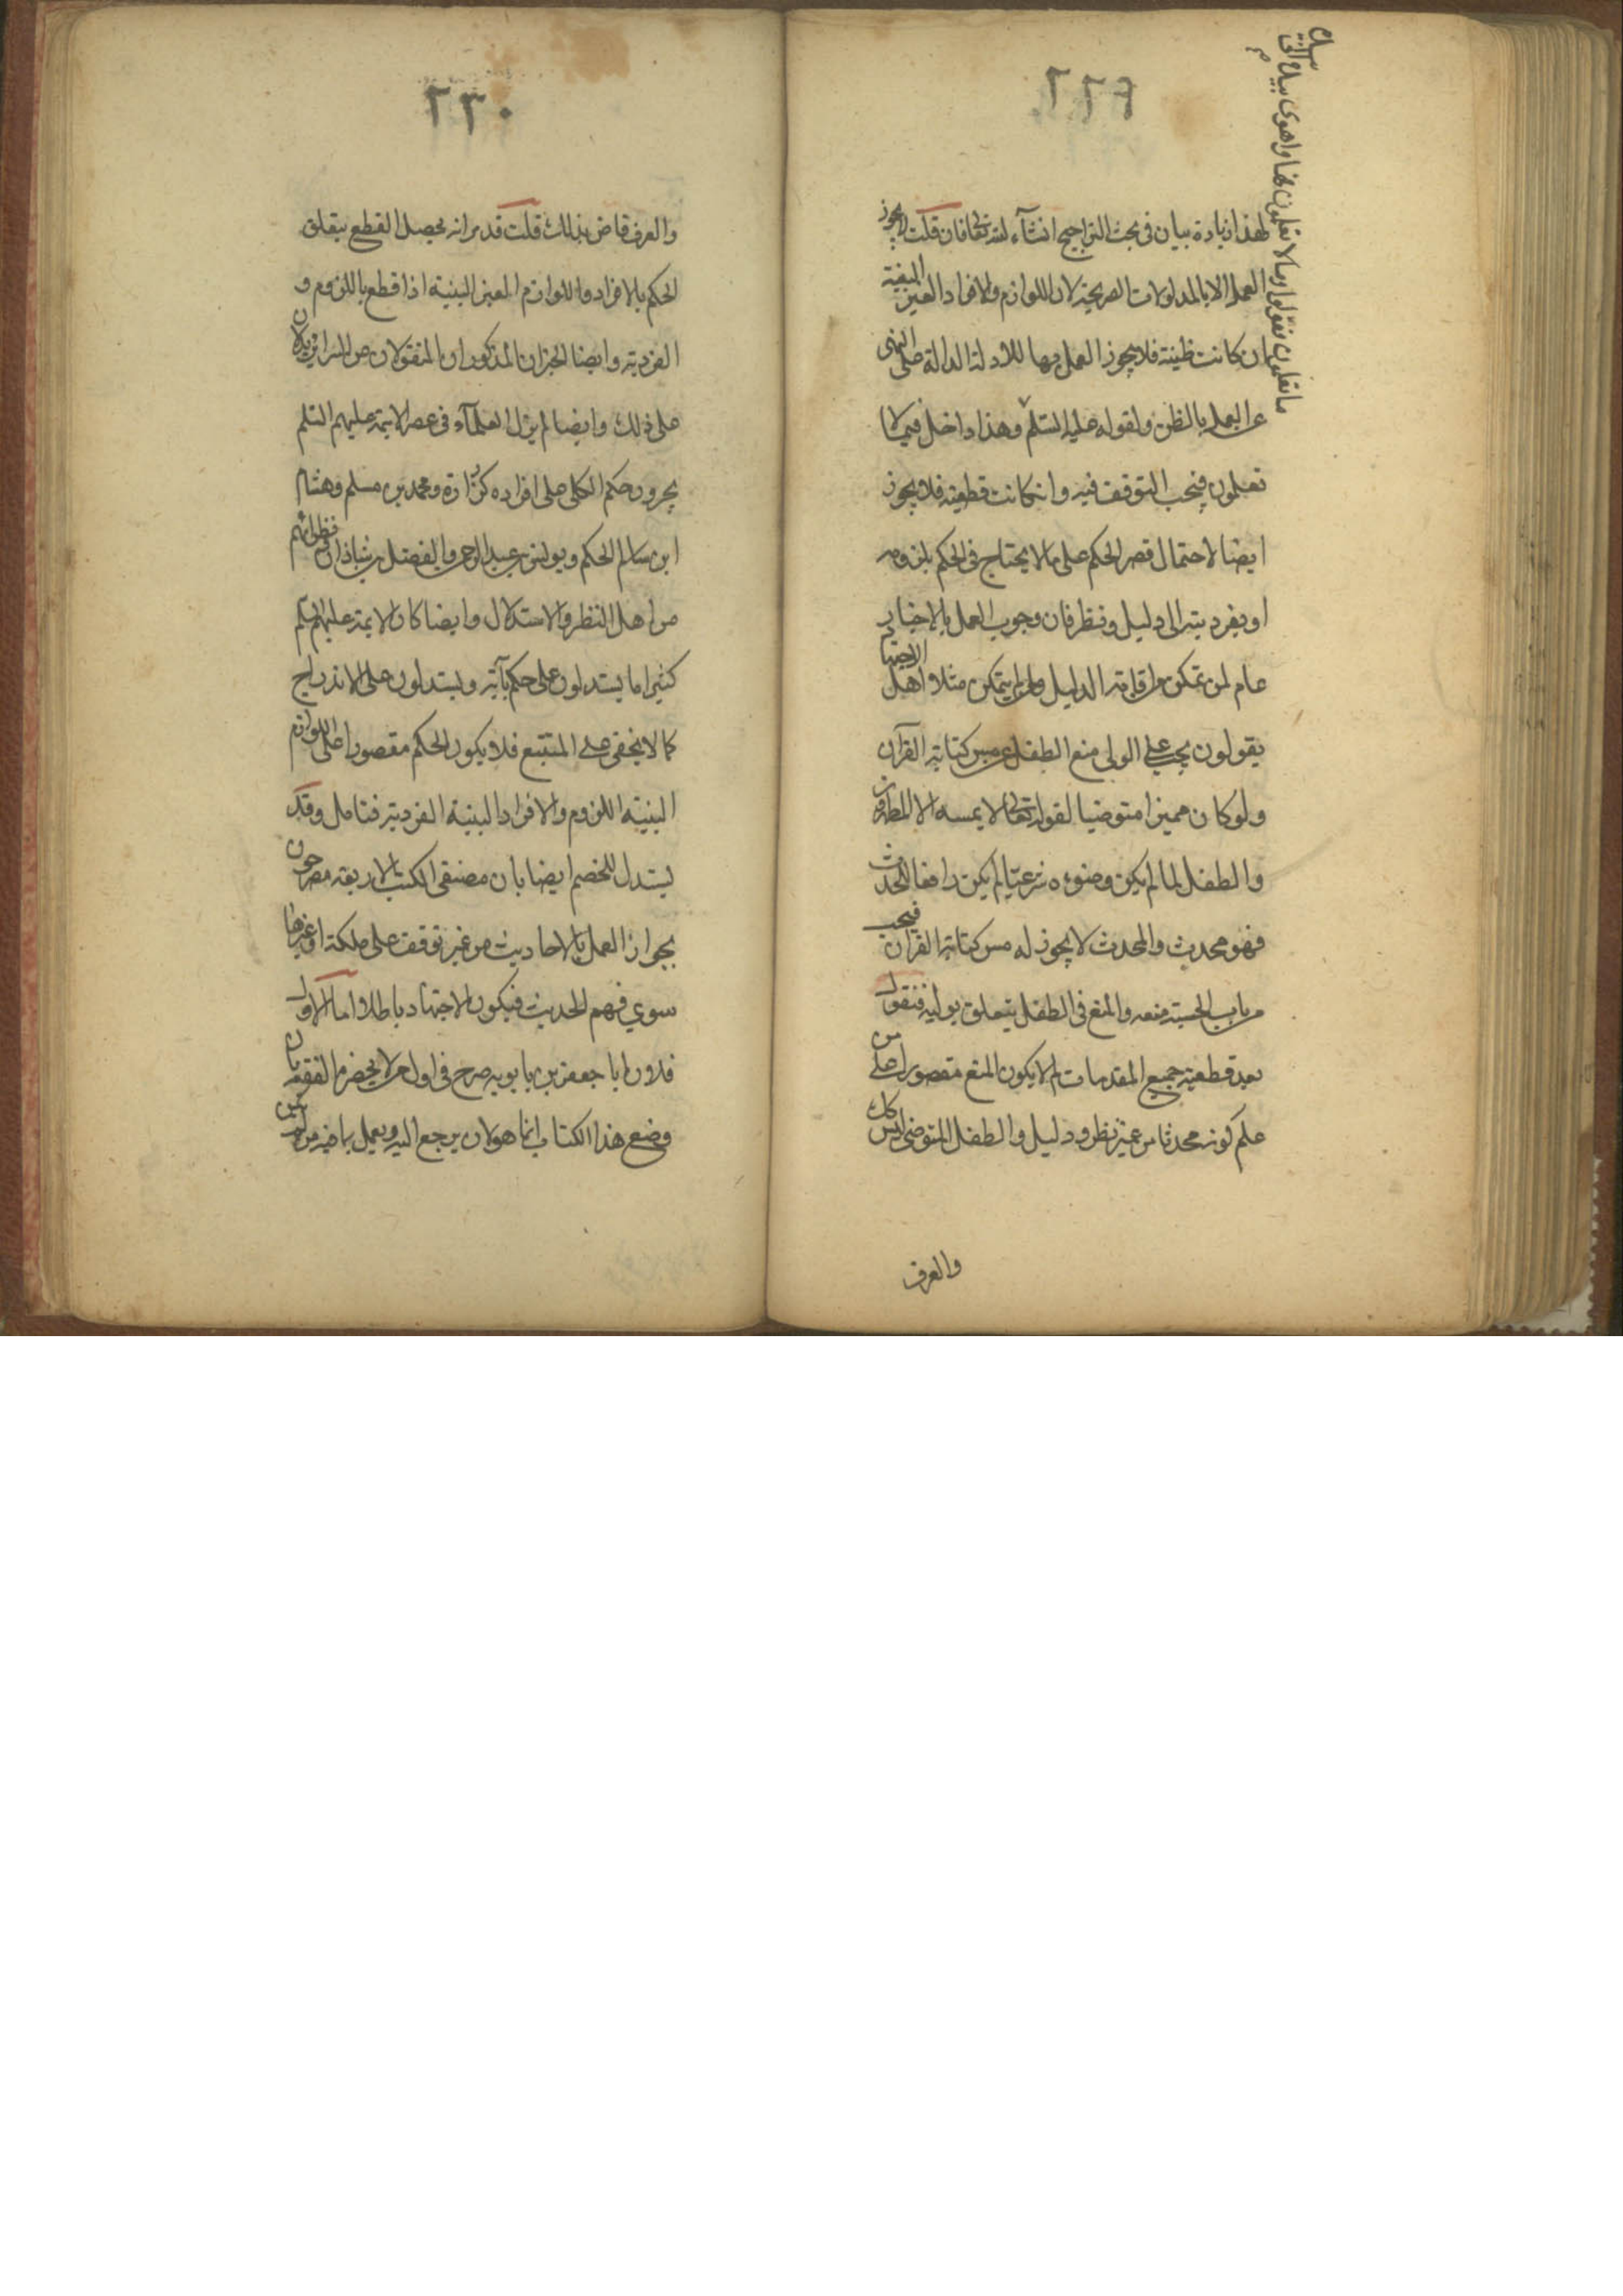 ٢٢٩
لهذا زيادة بيان في بحث التراجيح انشآء الله تعالى فان قلت لا يجوز
العمل الا بالمدلولات الصريحة لان اللوازم والافراد الغير البينة
ان كانت ظنية فلا يجوز العمل بها للادلة الدالة على النهى
عن العمل بالظن ولقوله عليه السلم وهذا داخل فيما لا
تعلمون فيجب التوقف فيه وان كانت قطعية فلا يجوز
ايضا لاحتمال قصر الحكم على ما لا يحتاج في الحكم بلزومه
او بفرديته الى دليل ونظر فان وجوب العمل بالاخبار
عام لمن تمكن من اقامة الدليل ولمن لم يتمكن مثلا اهل الاجتهاد
يقولون يجب على الولى منع الطفل عن مس كتابة القرآن
ولو كان مميزا متوضيا لقوله تعالى لا يمسه الا المطهرون
والطفل لما لم يكن وضوءه شرعيا لم يكن رافعا للحدث
فهو محدث والمحدث لا يجوز له مس كتابة القرآن فيجب
من باب الحسبة منعه والمنع في الطفل يتعلق بوليه فنقول
بعد قطعية جميع المقدمات لم لا يكون المنع مقصورا على من
علم كونه محدثا من غير نظر ودليل والطفل المتوضى ليس كك
والعرف
ما تعلمون فقولوا وما لا تعلمون فها واهوى بيده الى فيه
٢٣٠
والعرف قاض بذلك قلت قد مر انه يحصل القطع بتعلق
الحكم بالافراد واللوازم الغير البينة اذا قطع باللزوم و
الفردية وايضا الخبران المذكوران المنقولان عن السرائر يدلان
على ذلك وايضا لم يزل العلمآء في عصر الايمة عليهم السلم
يجرون حكم الكلى على افراده كزرارة ومحمد بن مسلم وهشام
ابن سالم الحكم ويونس بن عبد الرحمن والفضل بن شاذان فظهر انهم
من اهل النظر والاستدلال وايضا كان الايمة عليهم السلم
كثيرا ما يستدلون على حكم بآية ويستدلون على الاندراج
كما لا يخفى على المتتبع فلا يكون الحكم مقصورا على اللوازم
البينة اللزوم والافراد البينة الفردية فتامل وقد
يستدل للخصم ايضا بان مصنفى الكتب الاربعة مصرحون
بجواز العمل بالاحاديث من غير توقف على ملكة او غيرها
سوي فهم الحديث فيكون الاجتهاد باطلا اما الاول
فلان ابا جعفر بن بابويه صرح في اول من لا يحضره الفقيه بان
وضع هذا الكتاب انما هو لان يرجع اليه ويعمل بما فيه من